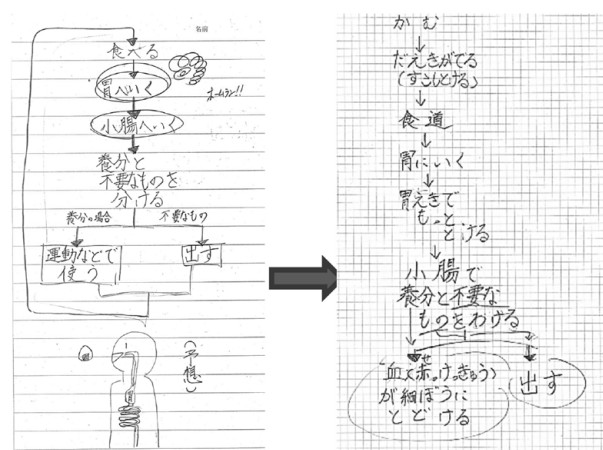 名前
食べる
胃へいく
ホームラン!!
小腸へいく
養分と
不要なものを
分ける
養分の場合
不要なもの
運動などで
使う
出す
(予想)
かむ
だえきがでる
(すこしとける)
食道
胃にいく
胃えきで
もっと
とける
小腸で
養分と不要な
ものをわける
が細ぼうに
とどける
出す